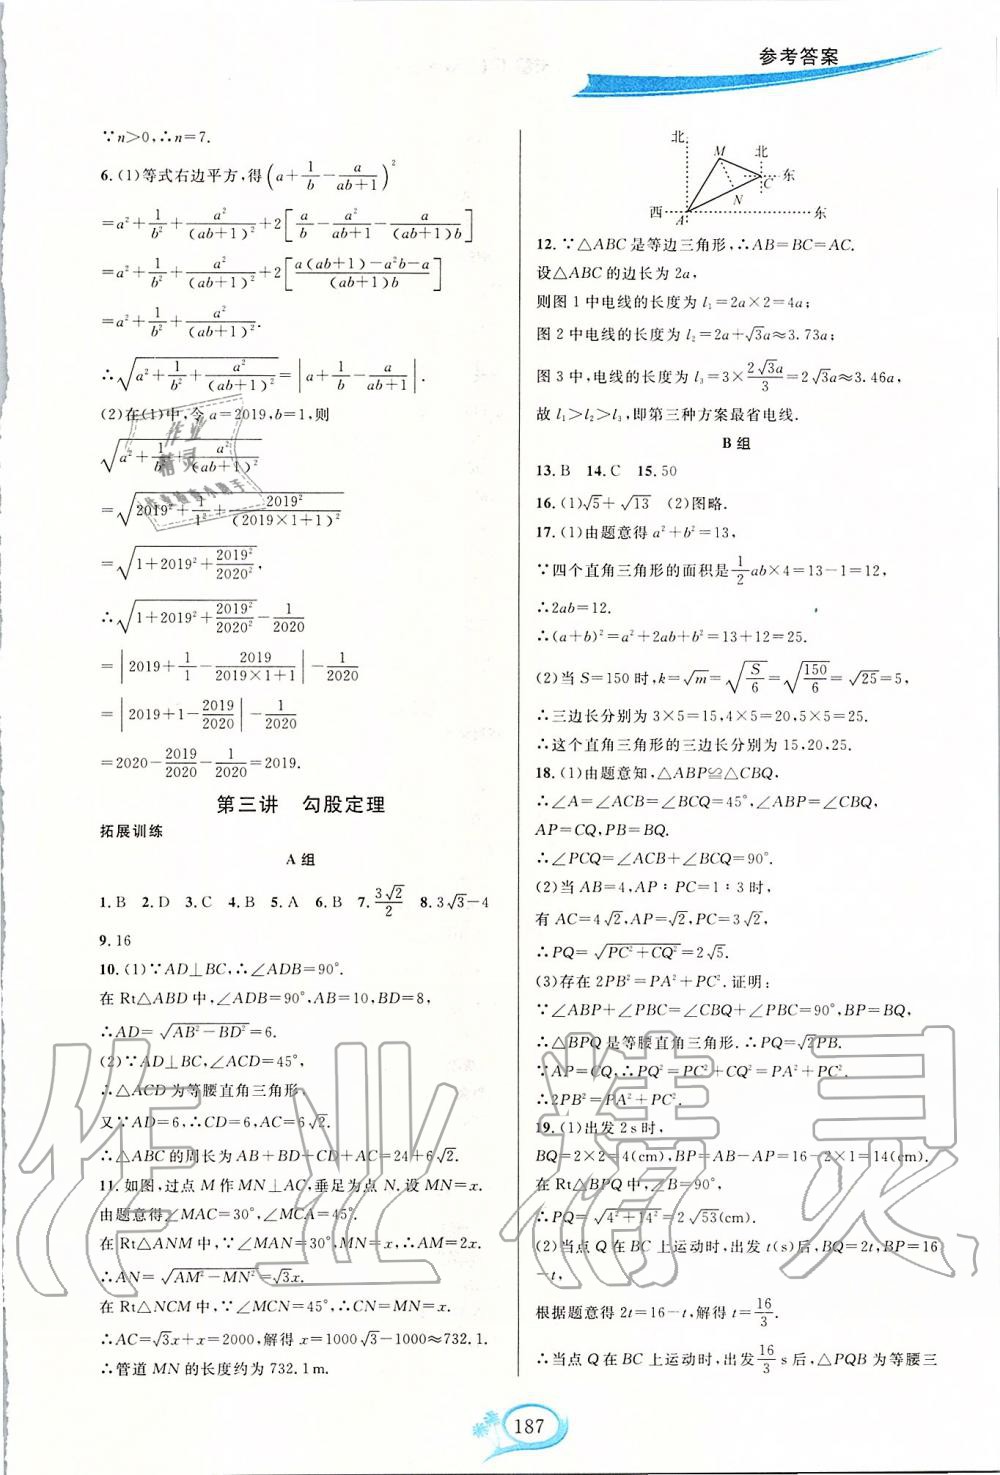 参考答案
∵n>0,∴n=7.
6.(1)等式右边平方,得(a+1/b−a/(ab+1))²
=a²+1/b²+a²/(ab+1)²+2[a/b−a²/(ab+1)−a/((ab+1)b)]
=a²+1/b²+a²/(ab+1)²+2[(a(ab+1)−a²b−a)/((ab+1)b)]
=a²+1/b²+a²/(ab+1)².
∴√(a²+1/b²+a²/(ab+1)²)=|a+1/b−a/(ab+1)|.
(2)在(1)中,令a=2019,b=1,则
√(a²+1/b²+a²/(ab+1)²)
=√(2019²+1/1²+2019²/(2019×1+1)²)
=√(1+2019²+2019²/2020²),
∴√(1+2019²+2019²/2020²)−1/2020
=|2019+1/1−2019/(2019×1+1)|−1/2020
=|2019+1−2019/2020|−1/2020
=2020−2019/2020−1/2020=2019.
第三讲 勾股定理
拓展训练
A组
1.B 2.D 3.C 4.B 5.A 6.B 7.3√2/2 8.3√3−4
9.16
10.(1)∵AD⊥BC,∴∠ADB=90°.
在Rt△ABD中,∠ADB=90°,AB=10,BD=8,
∴AD=√(AB²−BD²)=6.
(2)∵AD⊥BC,∠ACD=45°,
∴△ACD为等腰直角三角形.
又∵AD=6,∴CD=6,AC=6√2.
∴△ABC的周长为AB+BD+CD+AC=24+6√2.
11.如图,过点M作MN⊥AC,垂足为点N.设MN=x.
由题意得∠MAC=30°,∠MCA=45°.
在Rt△ANM中,∵∠MAN=30°,∴AM=2x.
∴AN=√(AM²−MN²)=√3x.
在Rt△NCM中,∵∠MCN=45°,∴CN=MN=x.
∴AC=√3x+x=2000,解得x=1000√3−1000≈732.1.
∴管道MN的长度约为732.1m.
北
M
北
C
东
N
西
A
东
12.∵△ABC是等边三角形,∴AB=BC=AC.
设△ABC的边长为2a,
则图1中电线的长度为l₁=2a×2=4a;
图2中电线的长度为l₂=2a+√3a≈3.73a;
图3中,电线的长度为l₃=3×2√3a/3=2√3a≈3.46a,
故l₁>l₂>l₃,即第三种方案最省电线.
B组
13.B 14.C 15.50
16.(1)√5+√13 (2)图略.
17.(1)由题意得a²+b²=13,
∵四个直角三角形的面积是1/2ab×4=13−1=12,
∴2ab=12.
∴(a+b)²=a²+2ab+b²=13+12=25.
(2)当S=150时,k=√m=√(S/6)=√(150/6)=√25=5,
∴三边长分别为3×5=15,4×5=20,5×5=25.
∴这个直角三角形的三边长分别为15,20,25.
18.(1)由题意知,△ABP≌△CBQ,
∴∠A=∠ACB=∠BCQ=45°,∠ABP=∠CBQ,
AP=CQ,PB=BQ.
∴∠PCQ=∠ACB+∠BCQ=90°.
(2)当AB=4,AP∶PC=1∶3时,
有AC=4√2,AP=√2,PC=3√2,
∴PQ=√(PC²+CQ²)=2√5.
(3)存在2PB²=PA²+PC².证明:
∵∠ABP+∠PBC=∠CBQ+∠PBC=90°,
∴△BPQ是等腰直角三角形.∴PQ=√2PB.
∵AP=CQ,∴PQ²=PC²+CQ²=PA²+PC²
∴2PB²=PA²+PC².
19.(1)出发2s时,
BQ=2×2=4(cm),BP=AB−AP=16−2×1=14(cm).
在Rt△BPQ中,∠B=90°,
∴PQ=√(4²+14²)=2√53(cm).
(2)当点Q在BC上运动时,出发t(s)后,BQ=2t,BP=16
−t,
根据题意得2t=16−t,解得t=16/3.
∴当点Q在BC上运动时,出发16/3s后,△PQB为等腰三
187
作业精灵
作业
精灵